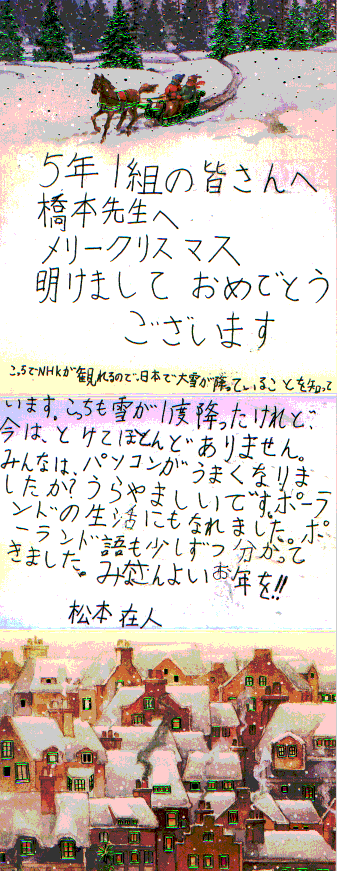 5年1組の皆さんへ
橋本先生へ
メリークリスマス
明けまして おめでとう
ございます
こっちでNHKが観れるので、日本で大雪が降っていることを知って
います。こっちも雪が1度降ったけれど、
今は、とけてほとんどありません。
みんなは、パソコンがうまくなりま
したか?うらやましいです。ポーラ
ンドの生活にもなれました。ポ
ーランド語も少しずつ分かって
きました。みなさんよいお年を!!
松本 在人